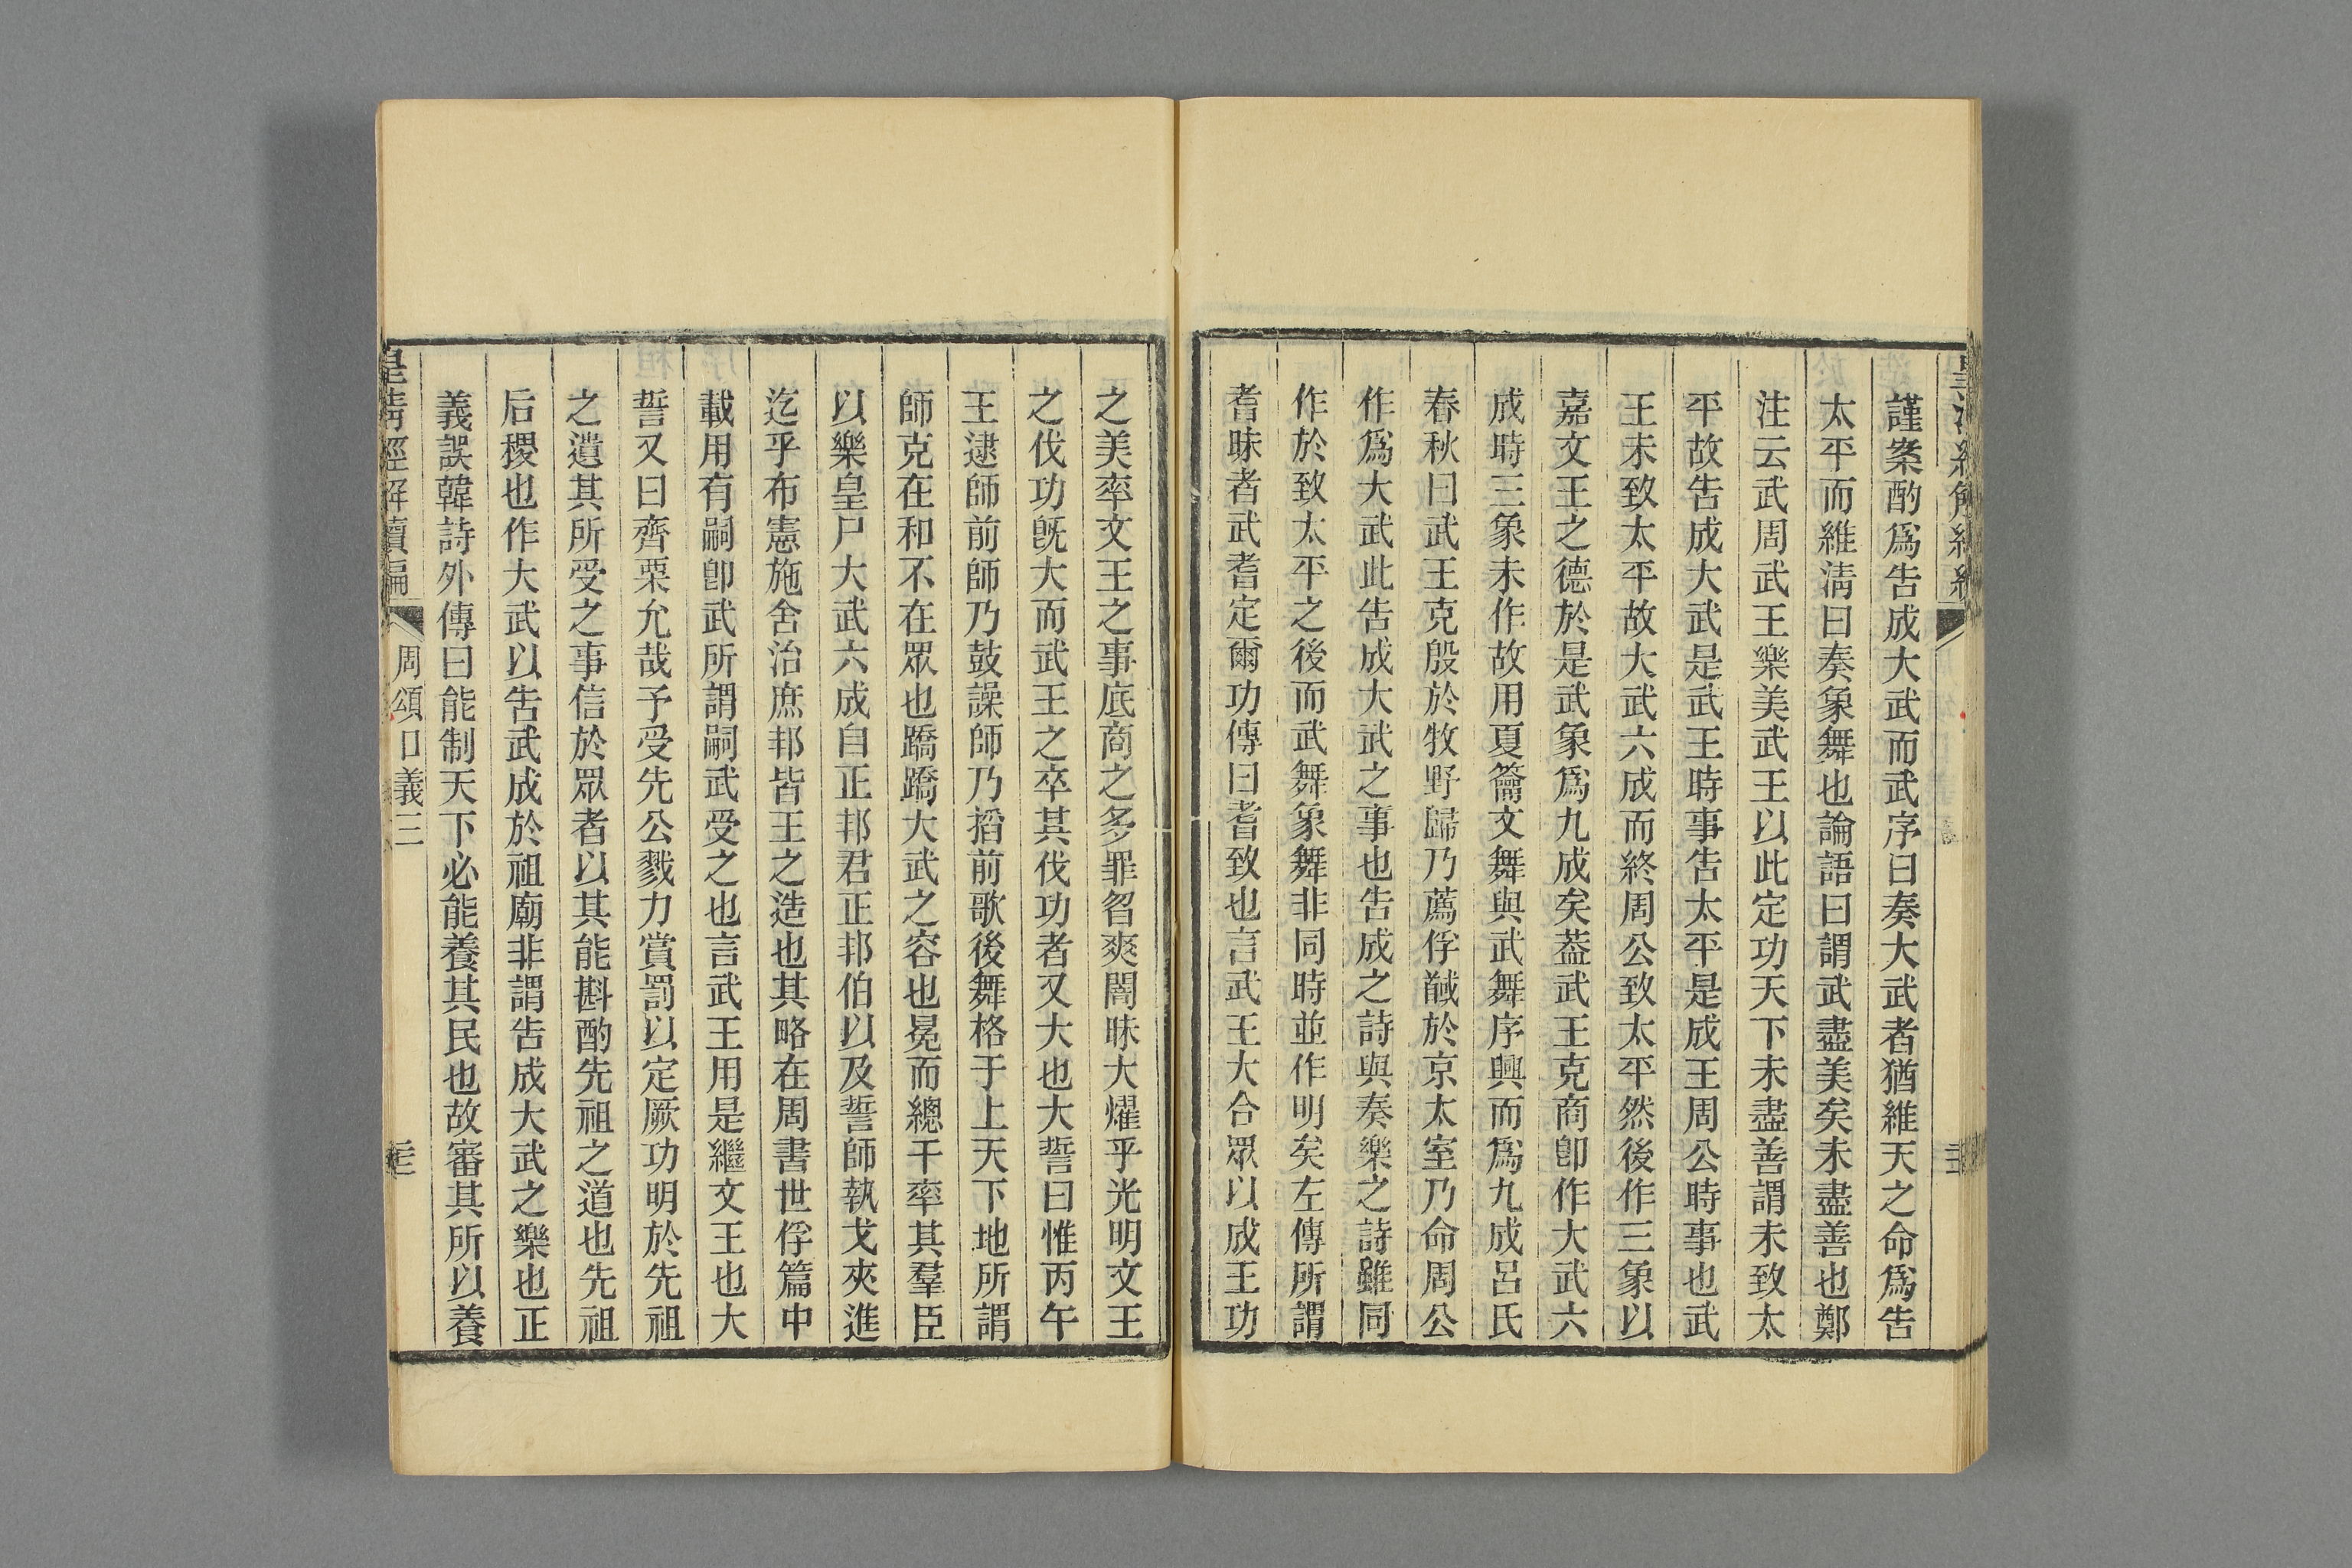 謹案酌爲告成大武而武序曰奏大武者猶維天之命爲告
太平而維清曰奏象舞也論語曰謂武盡美矣未盡善也鄭
注云武周武王樂美武王以此定功天下未盡善謂未致太
平故告成大武是武王時事告太平是成王周公時事也武
王未致太平故大武六成而終周公致太平然後作三象以
嘉文王之德於是武象爲九成矣葢武王克商卽作大武六
成時三象未作故用夏籥文舞與武舞序興而爲九成呂氏
春秋曰武王克殷於牧野歸乃薦俘馘於京太室乃命周公
作爲大武此告成大武之事也告成之詩與奏樂之詩雖同
作於致太平之後而武舞象舞非同時並作明矣左傳所謂
耆昧者武耆定爾功傳曰耆致也言武王大合眾以成王功
之美率文王之事底商之多罪曶爽闇昧大燿乎光明文王
之伐功既大而武王之卒其伐功者又大也大誓曰惟丙午
王逮師前師乃鼓譟師乃搯前歌後舞格于上天下地所謂
師克在和不在眾也蹻蹻大武之容也冕而總干率其羣臣
以樂皇尸大武六成自正邦君正邦伯以及誓師執戈夾進
迄乎布憲施舍治庶邦皆王之造也其略在周書世俘篇中
載用有嗣卽武所謂嗣武受之也言武王用是繼文王也大
誓又曰齊栗允哉予受先公戮力賞罰以定厥功明於先祖
之遺其所受之事信於眾者以其能斟酌先祖之道也先祖
后稷也作大武以告武成於祖廟非謂告成大武之樂也正
義誤韓詩外傳曰能制天下必能養其民也故審其所以養
皇清經解續編
周頌口義三